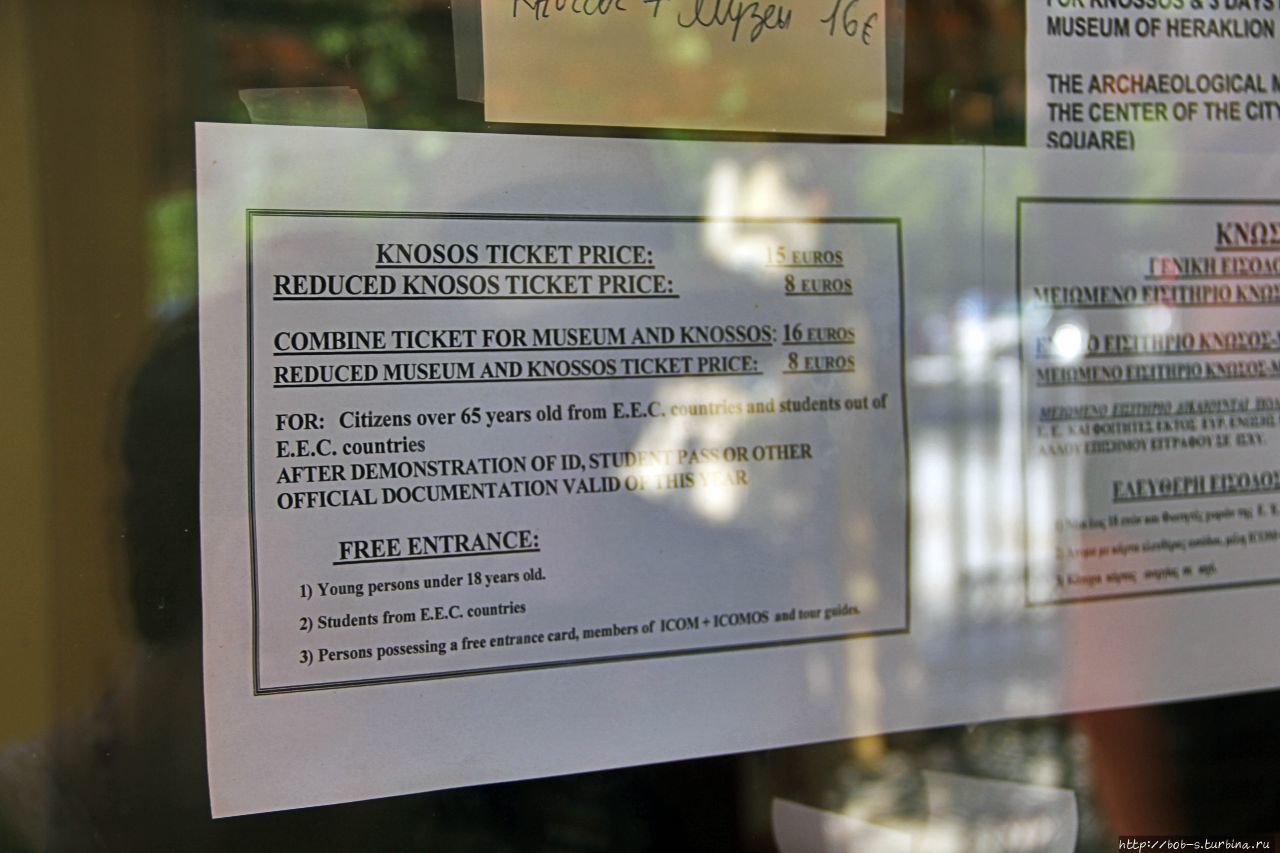 Кносос + Музеи 16€
FOR KNOSSOS & 3 DAYS
MUSEUM OF HERAKLION
THE ARCHAEOLOGICAL M
THE CENTER OF THE CITY
SQUARE)
KNOSOS TICKET PRICE: 15 EUROS
REDUCED KNOSOS TICKET PRICE: 8 EUROS
COMBINE TICKET FOR MUSEUM AND KNOSSOS: 16 EUROS
REDUCED MUSEUM AND KNOSSOS TICKET PRICE: 8 EUROS
FOR: Citizens over 65 years old from E.E.C. countries and students out of
E.E.C. countries
AFTER DEMONSTRATION OF ID, STUDENT PASS OR OTHER
OFFICIAL DOCUMENTATION VALID OF THIS YEAR
FREE ENTRANCE:
1) Young persons under 18 years old.
2) Students from E.E.C. countries
3) Persons possessing a free entrance card, members of ICOM + ICOMOS and tour guides.
ΚΝΩΣ
ΓΕΝΙΚΗ ΕΙΣΟΔΟ
ΜΕΙΩΜΕΝΟ ΕΙΣΙΤΗΡΙΟ ΚΝΩΣ
ΕΙΣΙΤΗΡΙΟ ΚΝΩΣΟΣ-
ΜΕΙΩΜΕΝΟ ΕΙΣΙΤΗΡΙΟ ΚΝΩΣΟΣ-Μ
ΜΕΙΩΜΕΝΟ ΕΙΣΙΤΗΡΙΟ ΔΙΚΑΙΟΥΝΤΑΙ ΠΟΛ
Ε. Ε. ΚΑΙ ΦΟΙΤΗΤΕΣ ΕΚΤΟΣ ΕΥΡ. ΕΝΩΣΗΣ
ΑΛΛΟΥ ΕΠΙΣΗΜΟΥ ΕΓΓΡΑΦΟΥ ΣΕ ΙΣΧΥ.
ΕΛΕΥΘΕΡΗ ΕΙΣΟΔΟΣ
http://bob-s.turbina.ru